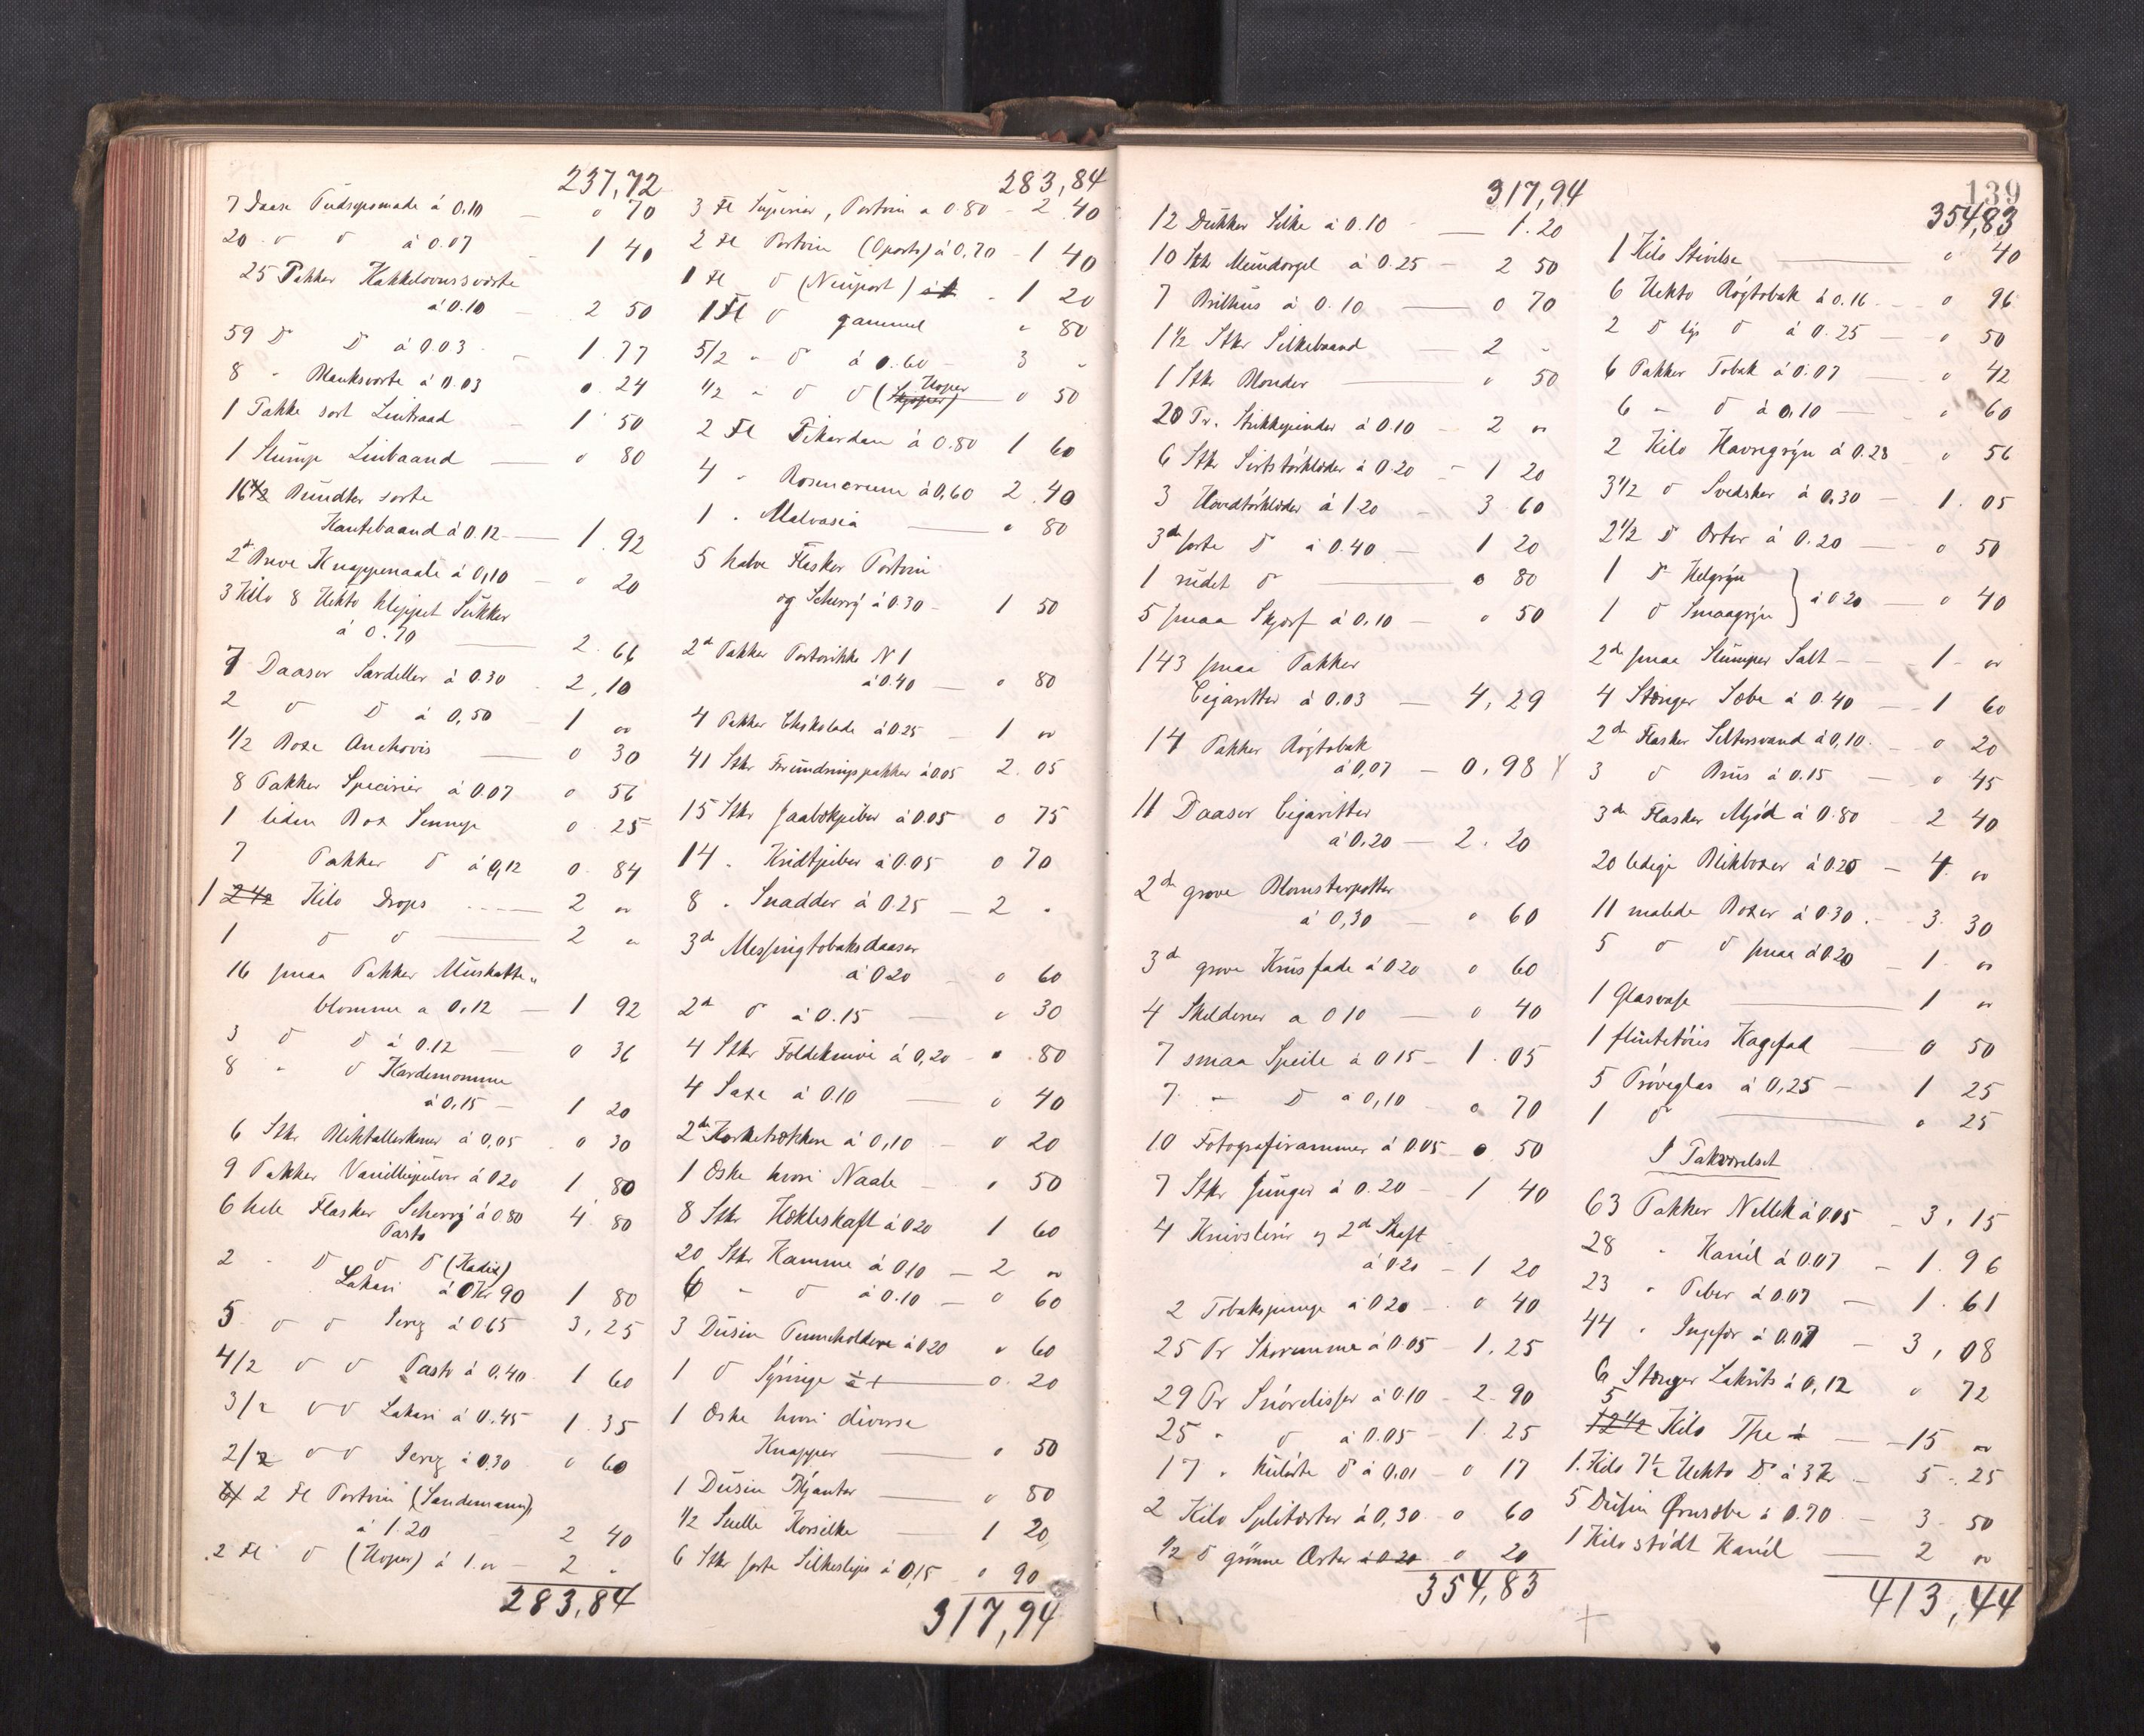 237,72
7 Daase Pudsepomade á 0.10 — 0 70
20 " " á 0.07 1 40
25 Pakker Kakkelovnssværte
á 0.10 — 2 50
59 D D á 0.03 — 1.77
8 " Blanksverte á 0.03 0.24
1 Pakke sort Lintraad — 1 50
1 Stump Linbaand — 0 80
16 Bundter sorte
Kantebaand á 0.12 — 1.92
2 Breve Knappenaale á 0,10 — 0 20
3 Kilo 8 Hekto klippet Sukker
á 0.70 — 2.66
7 Daaser Sardeller á 0.30 2,10
2 D D á 0,50 — 1 00
1/2 Boxe Anchovis — 0 30
8 Pakker Specirier á 0.07 0 56
1 liden Box Sennep 0.25
7 Pakker D á 0,12 0.84
1 2 1/2 Kilo Drops — 2 00
1 D D — 2 "
16 smaa Pakker Muskatte„
blomme a 0.12 — 1 92
3 D D á 0.12 — 0 36
8 " D Kardemomme
á 0,15 — 1 20
6 Stkr Bliktallerkener á 0,05 0 30
9 Pakker Vanillepulver á 0 20 1 80
6 hele Flasker Scherry á 0.80 4 80
Pasto
2 " D D D (Kadix)
Lakari á 0 Kr 90 1 80
5 D D Jerez á 0 65 3,25
4/2 D D Pasto á 0.40 1 60
3/2 D D Lakari á 0.45 1.35
2/2 D D Jerez á 0.30 0 60
2 Fl Portvin (Sandemann)
á 1.20 2 40
2 Fl D (Hoper) á 1.00 — 2 "
283,84
283,84
3 Fl Superior, Portvin a 0.80 — 2.40
2 Fl Portvin (Oporto) á 0,70 — 1 40
1 Fl D (Neuport) — 1 20
1 Fl D gammel " 80
5/2 " D á 0.60 — 3 "
1/2 " D D (Hoper) 0 50
2 Fl Pikardan á 0.80 1 60
4 " Rosencrum á 0,60 2.40
1 " Malvasia — 0 80
5 halve Flasker Portvin
og Scherry á 0.30 — 1 50
2 Pakker Portorikke N 1
á 0.40 — 0 80
4 Pakker Chokolade á 0.25 — 1 00
41 Stkr Forundringspakker á 0.05 2.05
15 Stkr Jaabækpiber á 0.05 0 75
14 " Kridtpiber á 0.05 0 70
8 " Snadder á 0.25 — 2 "
3de Messingtobaksdaaser
á 0 20 — 0 60
2 D á 0.15 — 0 30
4 Stkr Foldeknive á 0,20 — 0.80
4 Saxe á 0.10 — 0 40
2de Korketrækkere á 0,10 — 0 20
1 Æske hvori Naale — 0 50
8 Stkr Hækleskaft á 0 20 1 60
20 Stkr Kamme á 0.10 — 2 00
6 " D á 0.10 — 0 60
3 Dusin Penneholdere á 0 20 0 60
1 D Syringe — 0.20
1 Æske hvori diverse
Knapper — 0 50
1 Dusin Blyanter — 0 80
1/2 Snelle Korsilke — 1 20
6 Stkr sorte Silkeslips á 0,15 0 90
317,94
317,94
12 Dukker Silke á 0.10 — 1.20
10 Stk Mundorgel á 0.25 — 2 50
7 Brilhus á 0.10 — 0 70
1 1/2 Stkr Silkebaand — 2 "
1 Stkr Blonder — 0 50
20 Pr. Strikkepinder á 0.10 — 2 00
6 Stkr Sirtstørklæder á 0.20 — 1 20
3 Hovedtørklæder á 1 20 — 3 60
3de sorte D á 0.40 — 1 20
1 rudet D — 0 80
5 smaa Skjærf á 0.10 — 0 50
143 smaa Pakker
Cigaretter á 0.03 — 4,29
14 Pakker Røgtobak
á 0,07 — 0.98
11 Daaser Cigaretter
á 0,20 — 2.20
2de grove Blomsterpotter
á 0,30 — 0 60
3de grove Krusfade á 0 20 0 60
4 Skilderier a 0 10 — 0 40
7 smaa Speile á 0 15 — 1.05
7 " D á 0,10 0 70
10 Fotografirammer á 0 05 — 0 50
7 Stkr Punger á 0.20 — 1 40
4 Knivslirer og 2de Skaft
á 0 20 — 1 20
2 Tobakspunge á 0 20 — 0 40
25 Pr Skoremme á 0.05 — 1.25
29 Pr Snørelisser á 0.10 — 2.90
25 " D á 0.05 — 1.25
17 " kulørte D á 0.01 — 0 17
2 Kilo Spliterter á 0,30 — 0 60
1/2 D grønne Erter á 0.20 0 20
354,83
139
354,83
1 Kilo Stivelse — 0 40
6 Hekto Røgtobak á 0.16 — 0 96
2 D lys D á 0.25 — 0 50
6 Pakker Tobak á 0.07 — 0 42
6 " D á 0,10 — 0 60
2 Kilo Havregryn á 0.28 0 56
3 1/2 D Svedsker á 0,30 — 1.05
2 1/2 D Erter á 0.20 — 0 50
1 D Helgryn
1 D Smaagryn } á 0 20 — 0 40
2de smaa Stumper Salt — 1 00
4 Stænger Sæbe á 0.40 — 1 60
2de Flasker Seltersvand á 0,10 — 0 20
3 D Brus á 0.15 — 0 45
3de Flasker Mjød á 0.80 — 2 40
20 ledige Blikboxer á 0.20 — 4 00
11 malede Boxer á 0.30 — 3.30
5 D D smaa á 0 20 — 1 00
1 Glasvase — 1 00
1 flintetøies Kagefad — 0 50
5 Prøveglas á 0,25 — 1 25
1 D — 0 25
I Pakværelset
63 Pakker Nellik á 0.05 — 3,15
28 " Kanél á 0.07 — 1.96
23 " Peber á 0.07 — 1.61
44 " Ingefær á 0.07 — 3,08
6 Stænger Lakrits á 0,12 0 72
5
12 1/2 Kilo The — 15 00
1 Kilo 7 1/2 Hekto D á 3 Kr — 5.25
5 Dusin Ørnsæbe á 0.70 — 3.50
1 Kilo stødt Kanél — 2 00
413,44